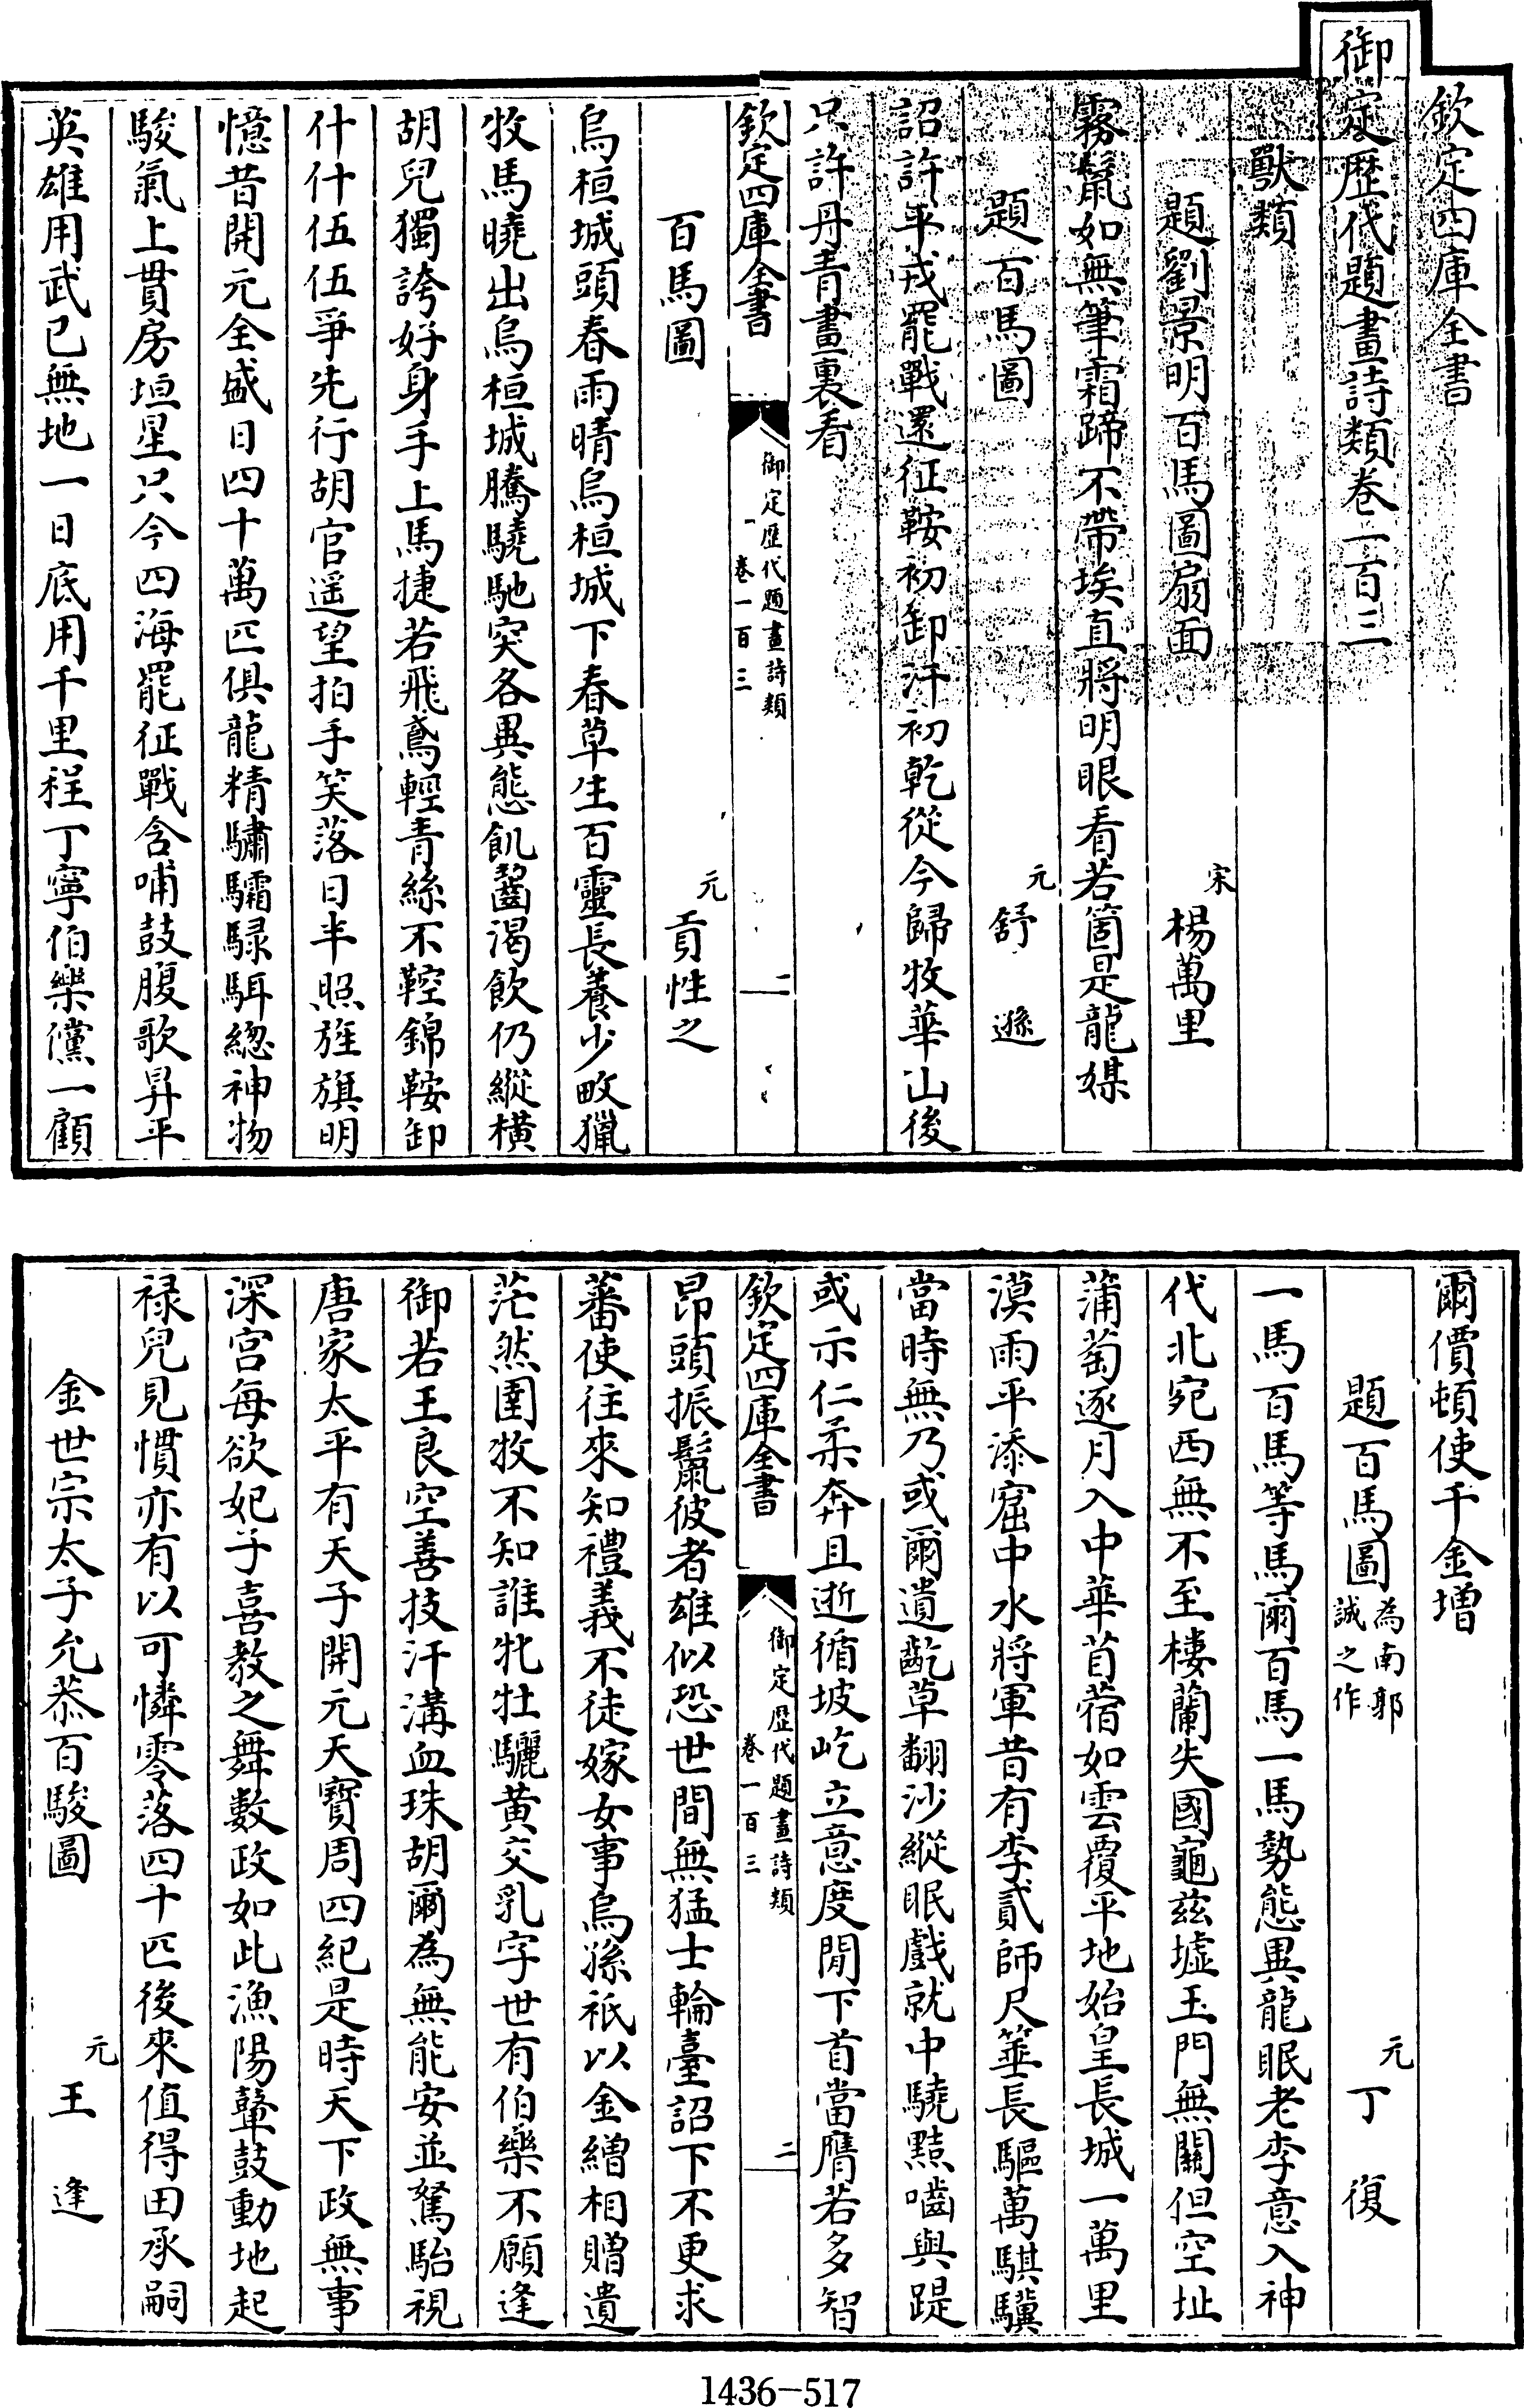 欽定四庫全書
御定歴代題畫詩類卷一百三
獸類
題劉景明百馬圖扇面　宋　楊萬里
霧鬛如無筆霜蹄不帶埃直將明眼看若箇是龍媒
題百馬圖　元　舒遜
詔許平戎罷戰還征鞍初卸汗初乾從今歸牧華山後
只許丹青畫裏看
欽定四庫全書　御定歴代題畫詩類　卷一百三　一
百馬圖　元　貢性之
烏桓城頭春雨晴烏桓城下春草生百靈長養少畋獵
牧馬曉出烏桓城騰驍馳突各異態飢齧渴飲仍縱横
胡兒獨誇好身手上馬捷若飛鳶輕青絲不鞚錦鞍卸
什什伍伍爭先行胡官遥望拍手笑落日半照旌旗明
憶昔開元全盛日四十萬匹俱龍精驌驦騄駬總神物
駿氣上貫房垣星只今四海罷征戰含哺鼓腹歌昇平
英雄用武已無地一日底用千里程丁寧伯樂儻一顧
爾價頓使千金增
題百馬圖為南郭誠之作　元　丁復
一馬百馬等馬爾百馬一馬勢態異龍眠老李意入神
代北宛西無不至樓蘭失國龜兹墟玉門無關但空址
蒲萄逐月入中華苜蓿如雲覆平地始皇長城一萬里
漠雨平添窟中水將軍昔有李貳師尺箠長驅萬騏驥
當時無乃或爾遺齕草翻沙縱眠戲就中驍點嚙與踶
或示仁柔奔且逝循坡屹立意度閒下首當膺若多智
欽定四庫全書　御定歴代題畫詩類　卷一百三　二
昂頭振鬛彼者雄似恐世間無猛士輪臺詔下不更求
蕃使往來知禮義不徒嫁女事烏孫祇以金繒相贈遺
茫然圉牧不知誰牝牡驪黄交乳字世有伯樂不願逢
御若王良空善技汗溝血珠胡爾為無能安並駑駘視
唐家太平有天子開元天寳周四紀是時天下政無事
深宫每欲妃子喜教之舞數政如此漁陽鼙鼓動地起
禄兒見慣亦有以可憐零落四十匹後來值得田承嗣
金世宗太子允恭百駿圖　元　王逢
1436-517